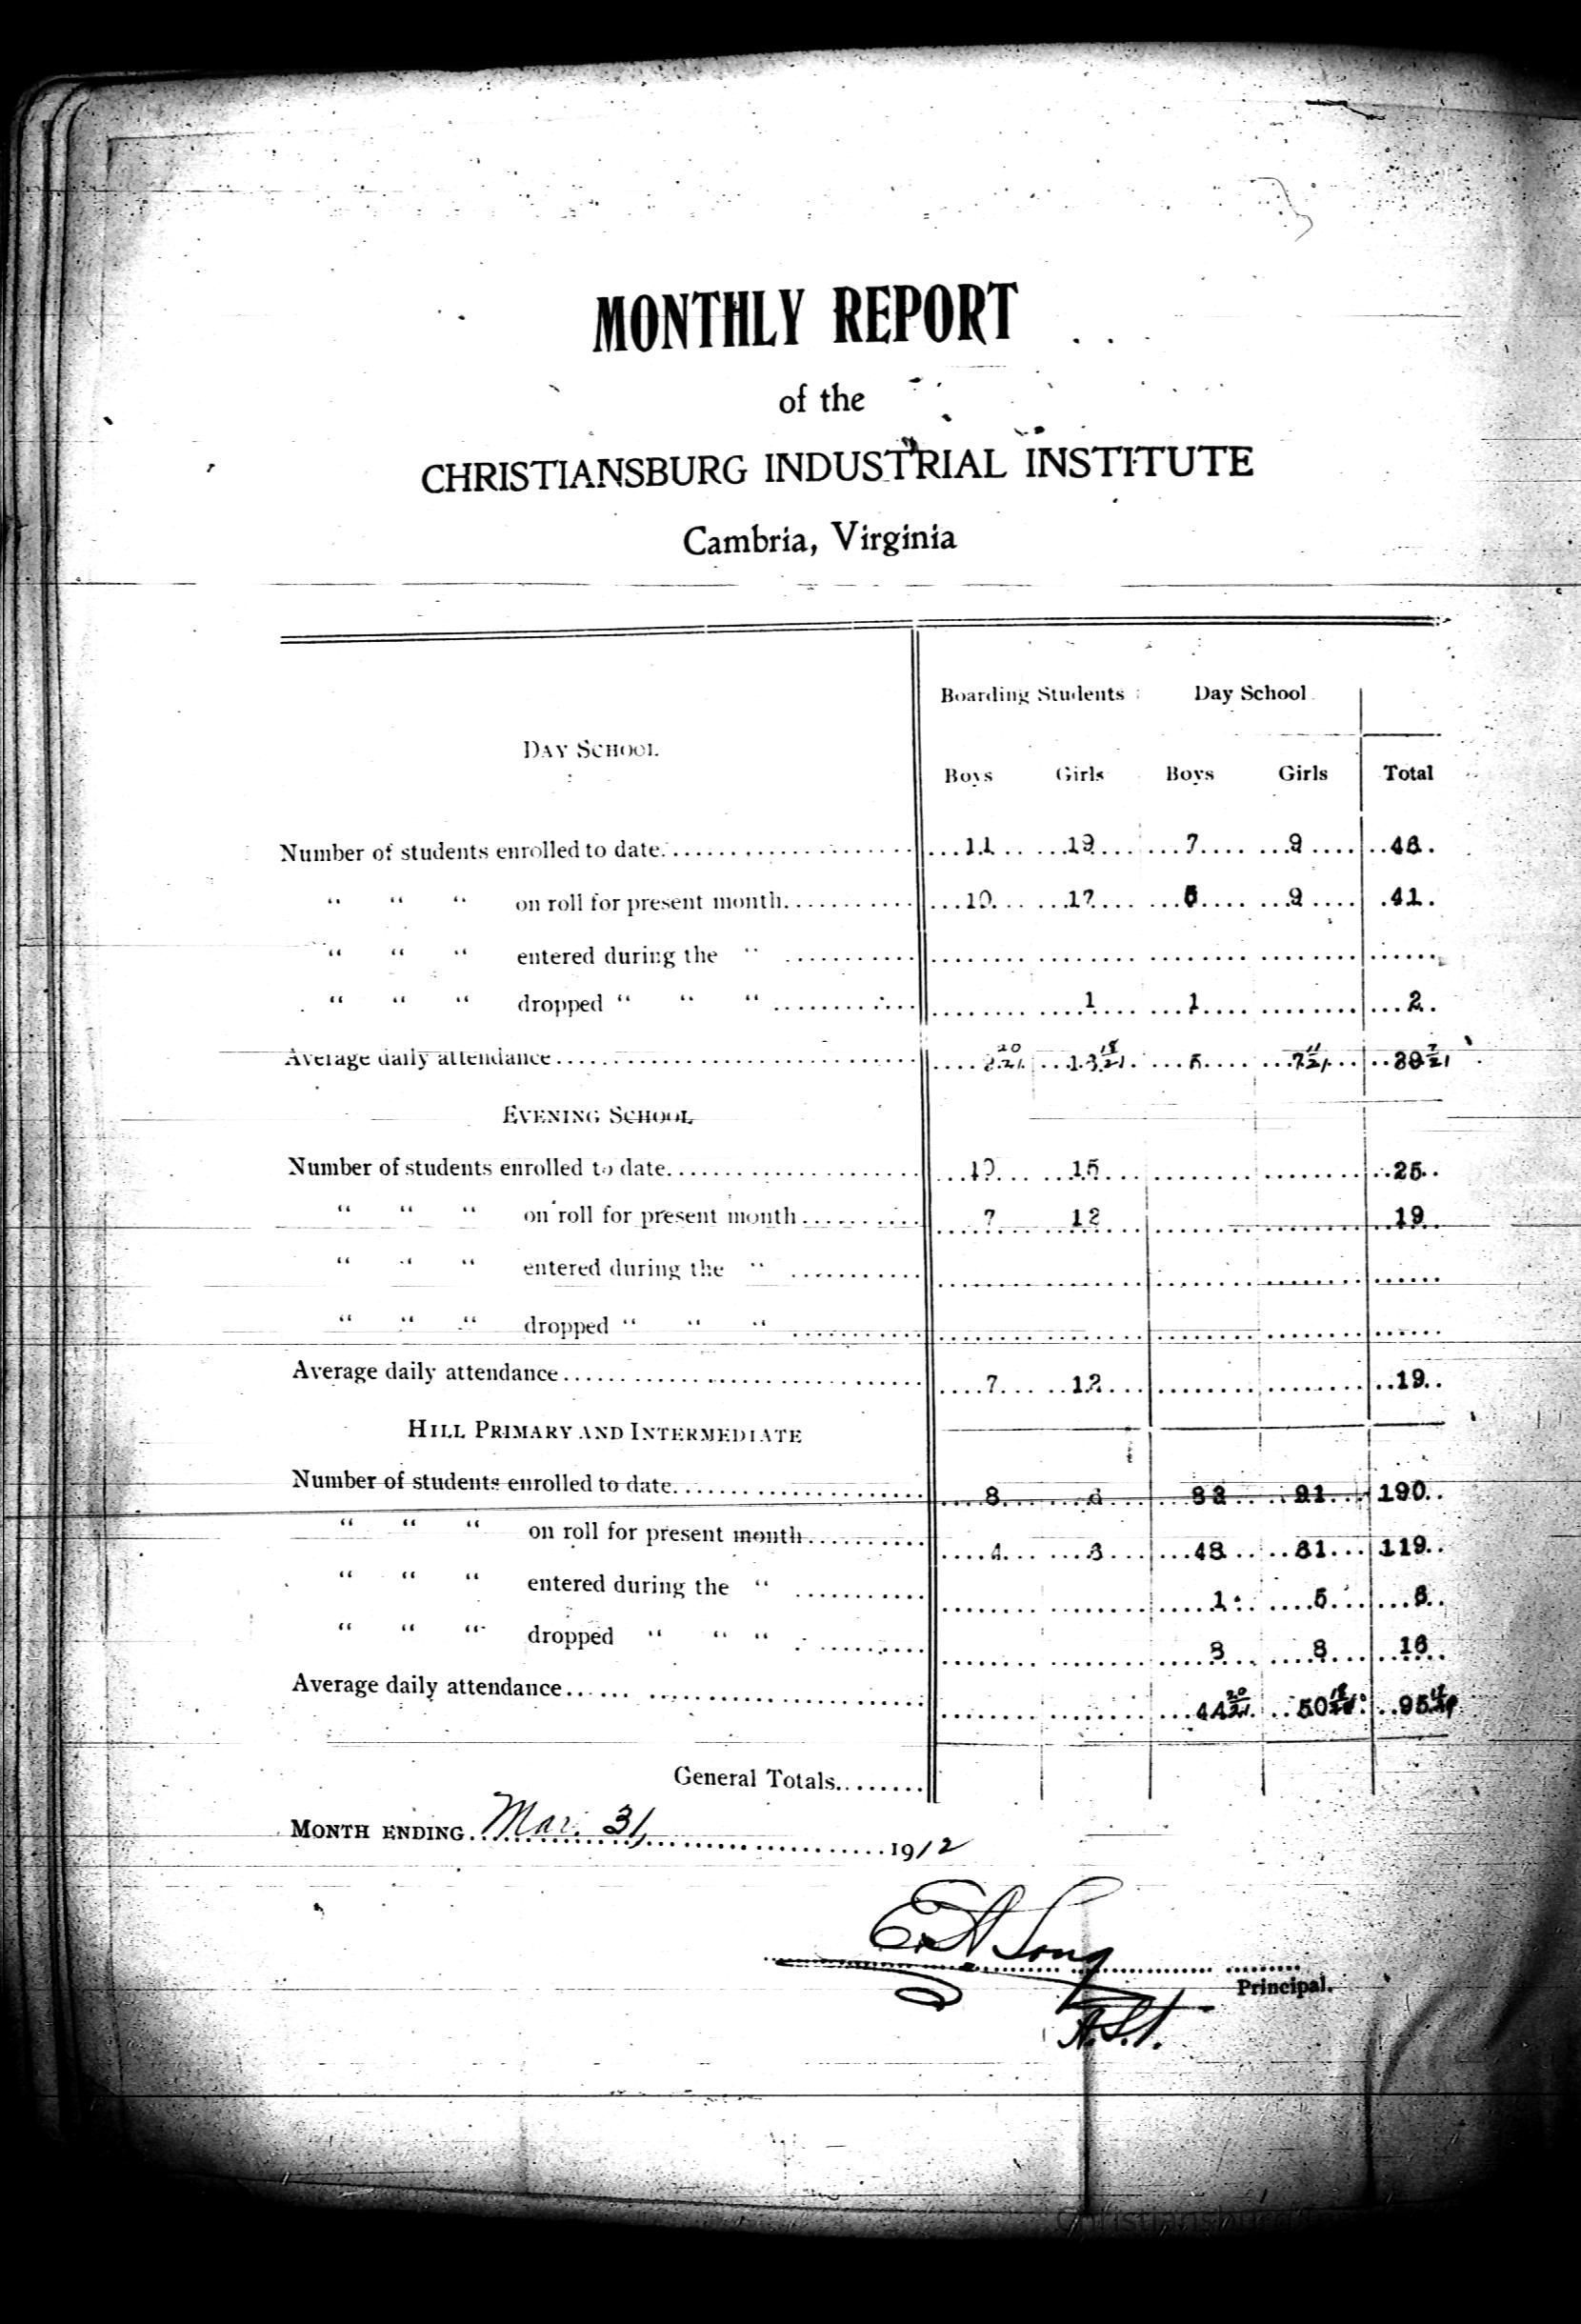 MONTHLY REPORT
of the
CHRISTIANSBURG INDUSTRIAL INSTITUTE
Cambria, Virginia
Boarding Students Day School
DAY SCHOOL
Boys Girls Boys Girls Total
Number of students enrolled to date 11 19 7 9 46
“ “ “ on roll for present month 10 17 5 9 41
“ “ “ entered during the “
“ “ “ dropped “ “ “ 1 1 2
Average daily attendance 13 18/21 5 7 11/21
EVENING SCHOOL
Number of students enrolled to date 10 15 25
“ “ “ on roll for present month 7 12 19
“ “ “ entered during the “
“ “ “ dropped “ “ “
Average daily attendance 7 12 19
HILL PRIMARY AND INTERMEDIATE
Number of students enrolled to date 8 91 190
“ “ “ on roll for present month 4 3 61 119
“ “ “ entered during the “ 1 5 6
“ “ “ dropped “ “ “ 8 8 16
Average daily attendance 44 20/21 50 95
General Totals
MONTH ENDING Mar. 31, 1912
E A Long
Principal.
A.S.T.